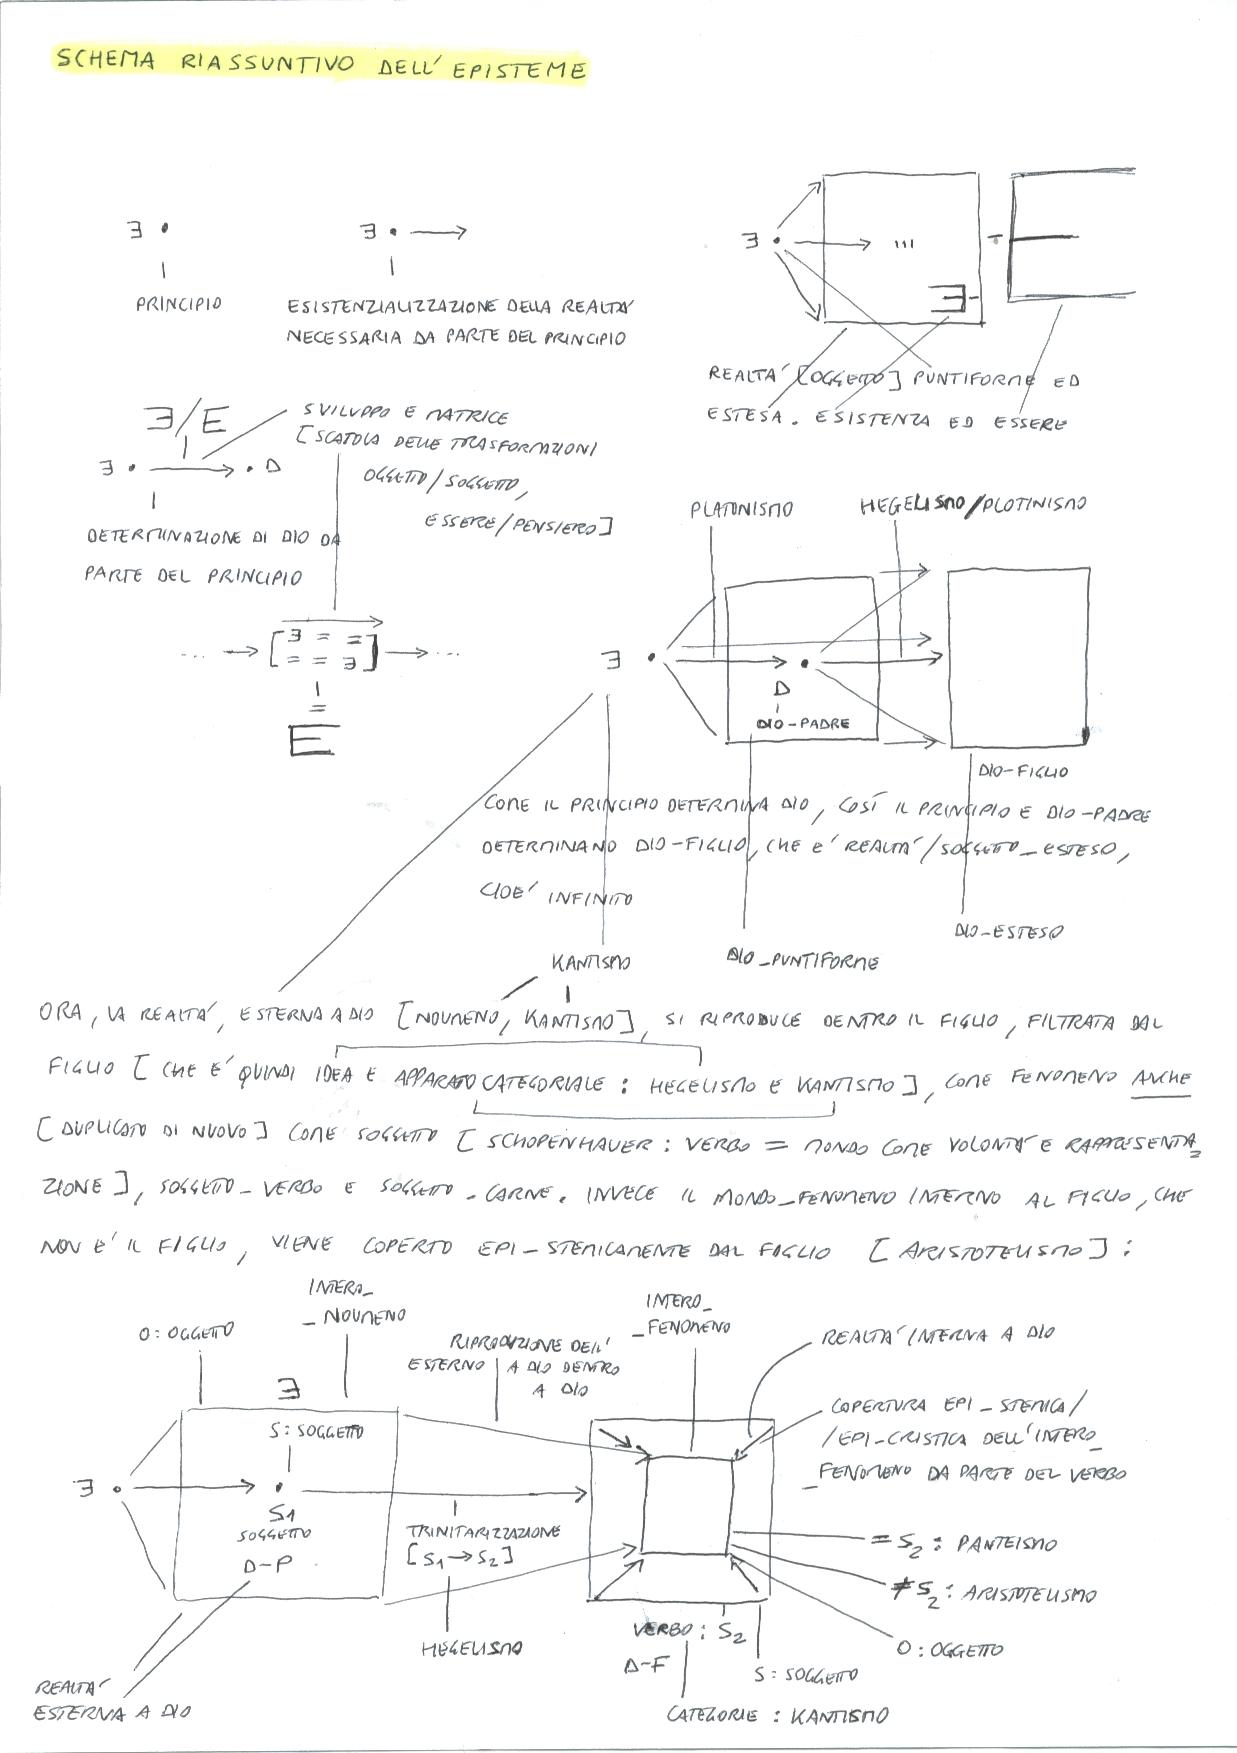 SCHEMA RIASSUNTIVO DELL'EPISTEME
∃ •
PRINCIPIO
∃ • →
ESISTENZIALIZZAZIONE DELLA REALTA'
NECESSARIA DA PARTE DEL PRINCIPIO
∃ • → ...
∃
E
REALTA' [OGGETTO] PUNTIFORME ED
ESTESA. ESISTENZA ED ESSERE
∃/E
∃ • → • D
DETERMINAZIONE DI DIO DA
PARTE DEL PRINCIPIO
SVILUPPO E MATRICE
[SCATOLA DELLE TRASFORMAZIONI
OGGETTO/SOGGETTO,
ESSERE/PENSIERO]
... → [∃ = =
= = ∃] → ...
=
E
PLATONISMO
HEGELISMO/PLOTINISMO
∃
D
DIO-PADRE
DIO-FIGLIO
COME IL PRINCIPIO DETERMINA DIO, COSÍ IL PRINCIPIO E DIO-PADRE
DETERMINANO DIO-FIGLIO, CHE E' REALTA'/SOGGETTO_ESTESO,
CIOE' INFINITO
KANTISMO
DIO_PUNTIFORME
DIO-ESTESO
ORA, LA REALTA', ESTERNA A DIO [NOUMENO, KANTISMO], SI RIPRODUCE DENTRO IL FIGLIO, FILTRATA DAL
FIGLIO [CHE E' QUINDI IDEA E APPARATO CATEGORIALE : HEGELISMO E KANTISMO], COME FENOMENO ANCHE
[DUPLICATO DI NUOVO] COME SOGGETTO [SCHOPENHAUER : VERBO = MONDO COME VOLONTA' E RAPPRESENTA_
ZIONE], SOGGETTO-VERBO E SOGGETTO-CARNE. INVECE IL MONDO_FENOMENO INTERNO AL FIGLIO, CHE
NON E' IL FIGLIO, VIENE COPERTO EPI-STEMICAMENTE DAL FIGLIO [ARISTOTELISMO] :
O : OGGETTO
INTERO_
_NOUMENO
RIPRODUZIONE DELL'
ESTERNO A DIO DENTRO
A DIO
INTERO_
_FENOMENO
REALTA' INTERNA A DIO
COPERTURA EPI-STEMICA/
/EPI-CRISTICA DELL'INTERO_
_FENOMENO DA PARTE DEL VERBO
∃
S : SOGGETTO
∃ •
S1
SOGGETTO
D-P
TRINITARIZZAZIONE
[S1→S2]
HEGELISMO
= S2 : PANTEISMO
≠ S2 : ARISTOTELISMO
O : OGGETTO
VERBO : S2
D-F
S : SOGGETTO
CATEGORIE : KANTISMO
REALTA'
ESTERNA A DIO